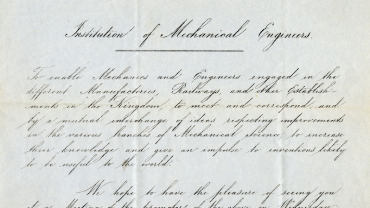 Institution of Mechanical Engineers.
To enable Mechanics and Engineers engaged in the
different Manufactories, Railways, and other Establish-
ments in the Kingdom, to meet and correspond, and
by a mutual interchange of ideas respecting improvements
in the various branches of Mechanical Science to increase
their knowledge and give an impulse to inventions likely
to be useful to the world.
We hope to have the pleasure of seeing you
at a Meeting of the promoters of the above on Wednesday